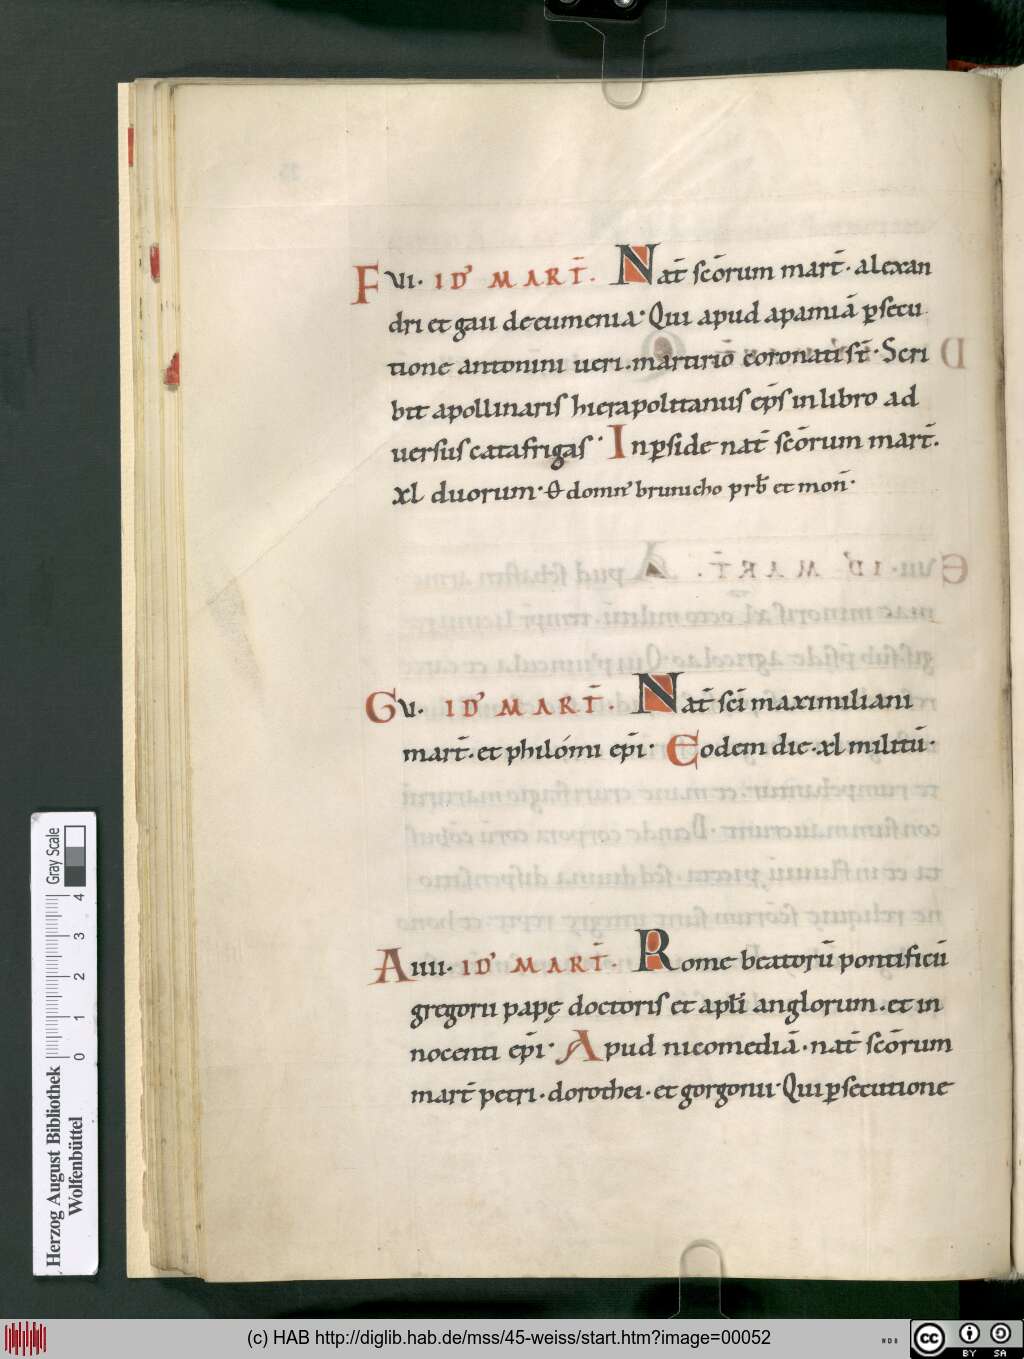 F VI. ID' MART̄. Nat̄ sc̄orum mart̄. alexan
dri et gaii de eumenia. Qui apud apamiā ꝑsecu
tione antonini ueri. martirio coronati st̄. Scri
bit apollinaris hierapolitanus ep̄s in libro ad
uersus catafrigas. In ꝑside nat̄ sc̄orum mart̄.
xl duorum. prb̄ et mon̄.
G V. ID' MART̄. Nat̄ sc̄i maximiliani
mart̄. et philómi ep̄i. Eodem die. xl militū.
A IIII. ID' MART̄. Rome beatorū pontificū
gregorii papę doctoris et apl̄i anglorum. et in
nocenti ep̄i. Apud nicomediā. nat̄ sc̄orum
mart̄ petri. dorothei. et gorgonii. Qui ꝑsecutione
Herzog August Bibliothek
Wolfenbüttel
0 1 2 3 4
Gray Scale
(c) HAB http://diglib.hab.de/mss/45-weiss/start.htm?image=00052
cc BY SA